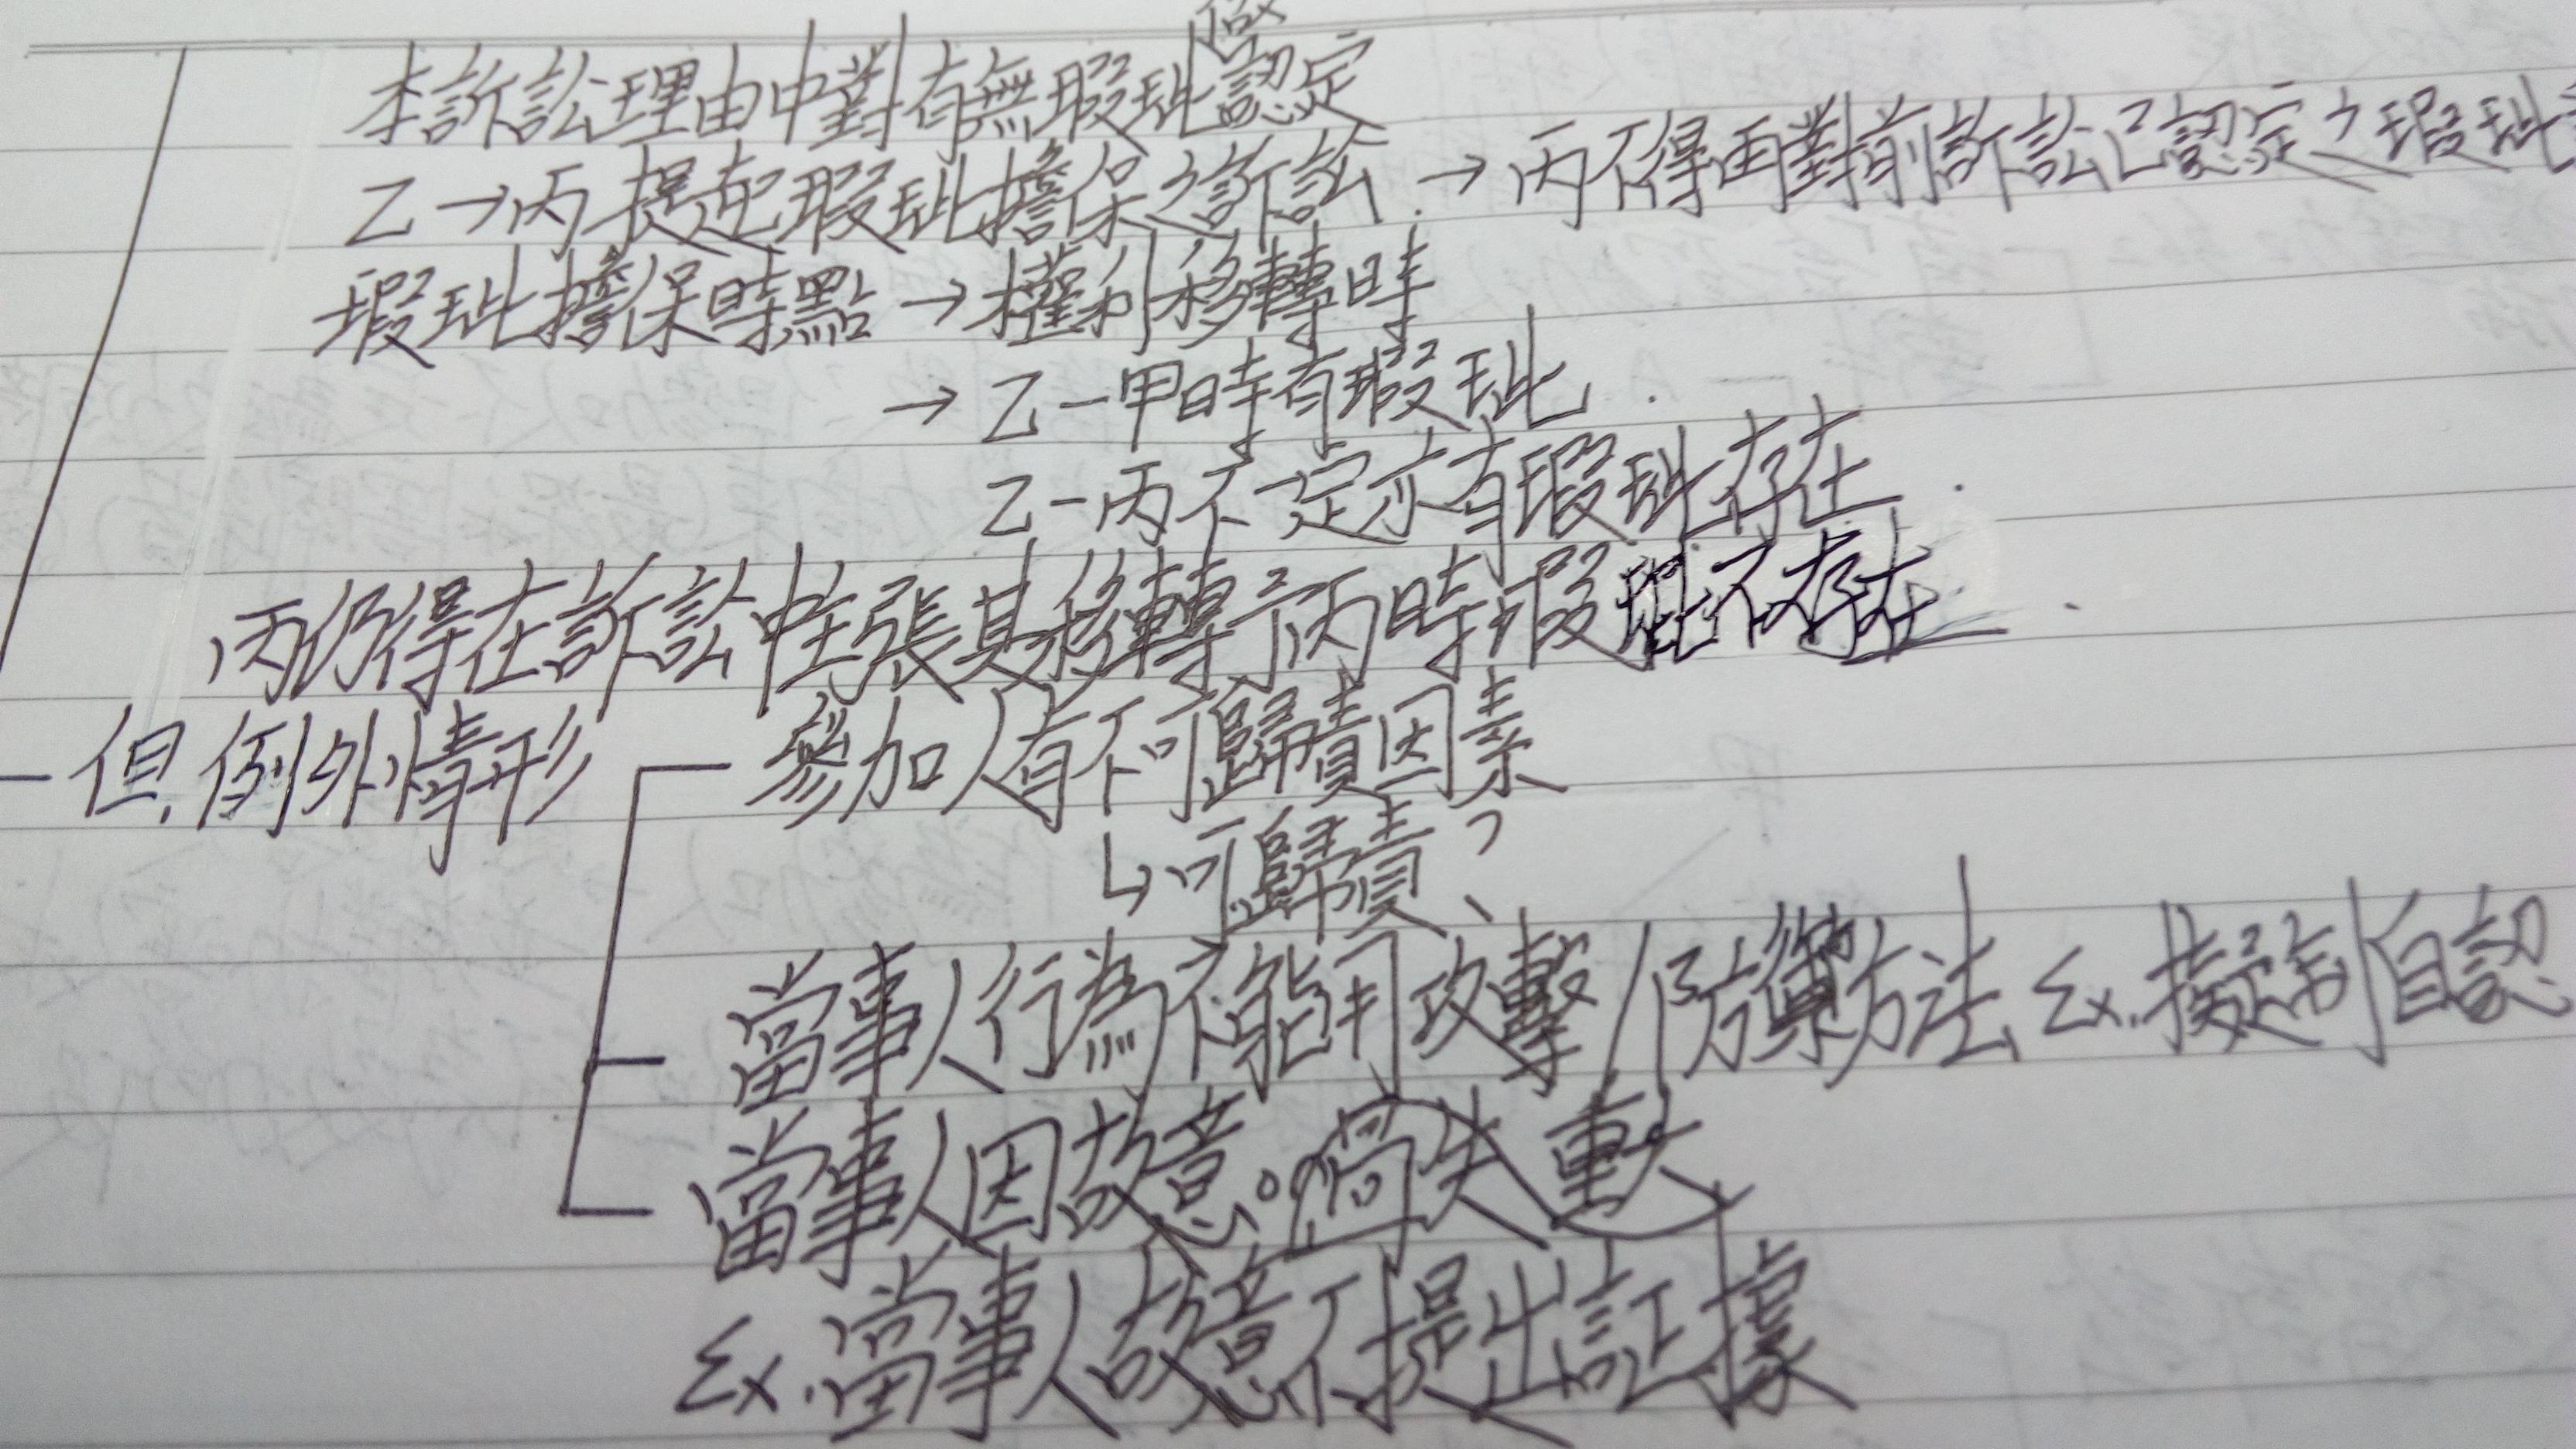 本訴訟理由中對有無瑕玼做認定
乙→丙提起瑕玼擔保之訴訟 → 丙不得再對前訴訟已認定之瑕玼
瑕玼擔保時點 → 權利移轉時
→ 乙-甲時有瑕玼.
乙-丙不一定亦有瑕玼存在.
丙仍得在訴訟中主張其移轉予丙時瑕玼不存在.
但,例外情形
參加人有不可歸責因素
↳可歸責?
當事人行為不能用攻擊/防禦方法, Ex.擬制自認
當事人因故意。過失 重大
Ex.當事人故意不提出証據